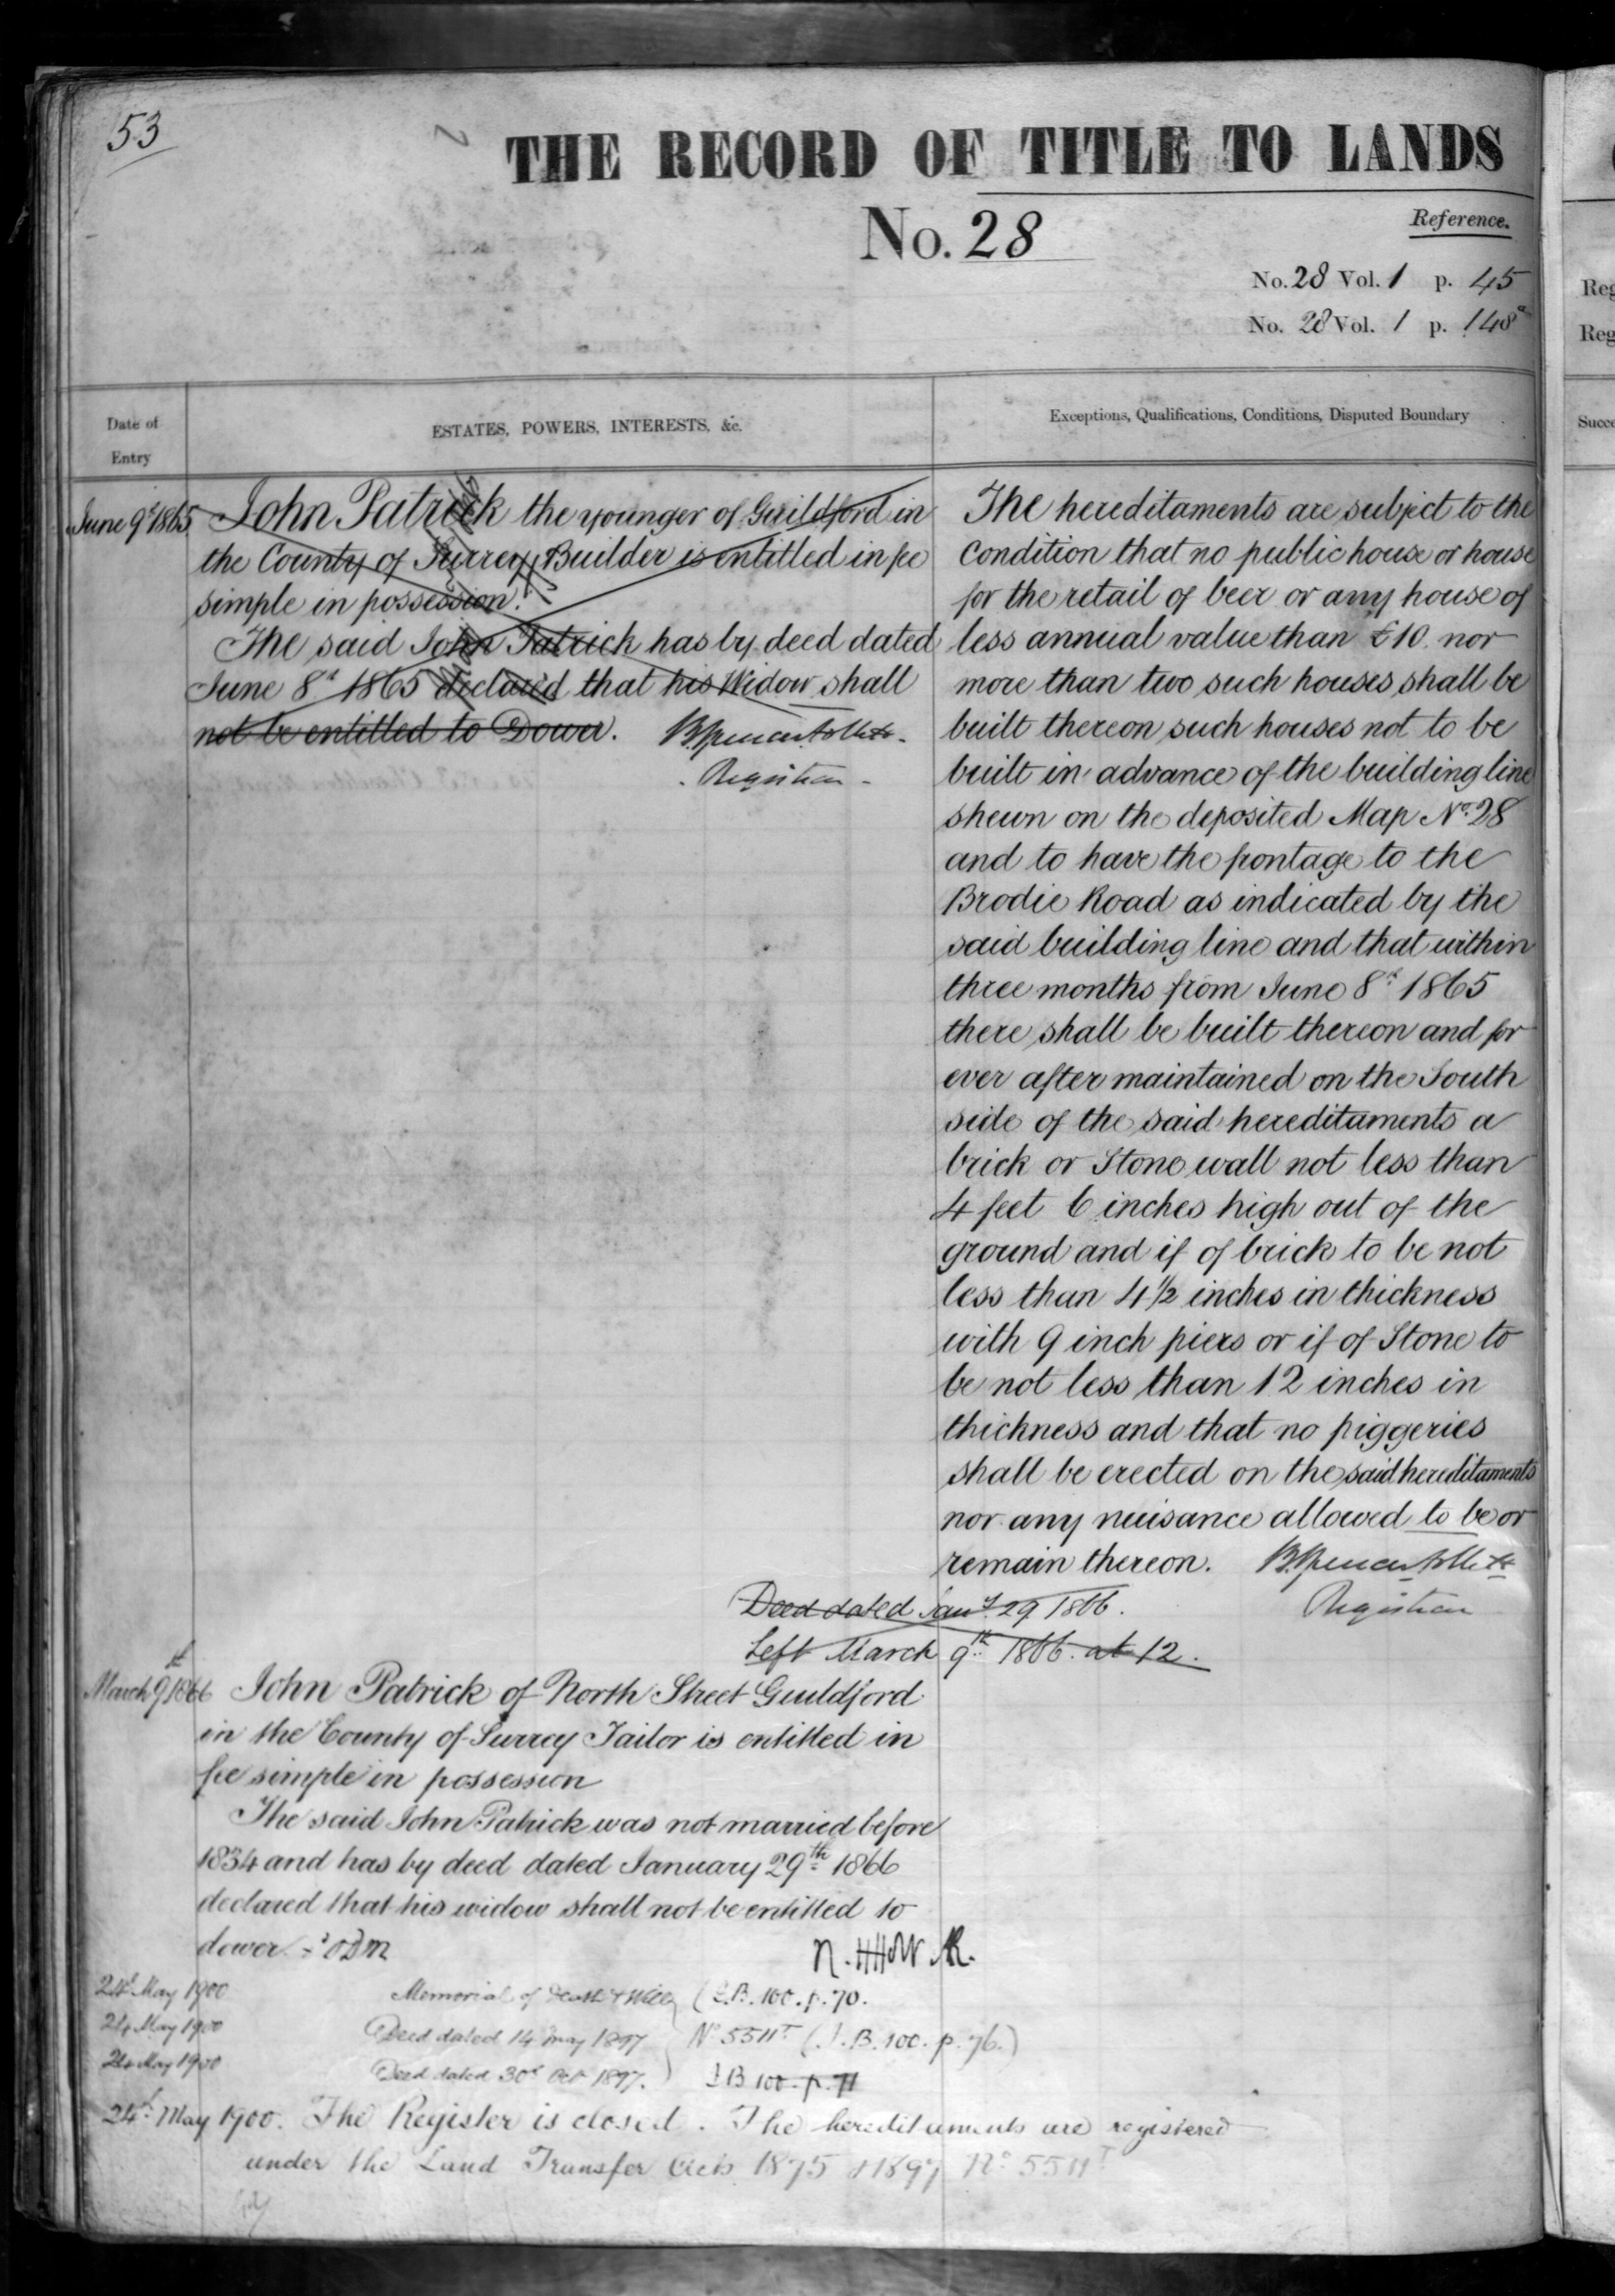 53
THE RECORD OF TITLE TO LANDS
No. 28
Reference.
No. 28 Vol. 1 p. 45
No. 28 Vol. 1 p. 148a
Date of
Entry
ESTATES, POWERS, INTERESTS, &c.
Exceptions, Qualifications, Conditions, Disputed Boundary
June 9th 1865
John Patrick the younger of Guildford in
the County of Surrey Builder is entitled in fee
simple in possession.
The said John Patrick has by deed dated
June 8th 1865 declared that his Widow shall
not be entitled to Dower.
Registrar
The hereditaments are subject to the
condition that no public house or house
for the retail of beer or any house of
less annual value than £10 nor
more than two such houses shall be
built thereon such houses not to be
built in advance of the building line
shewn on the deposited Map No. 28
and to have the frontage to the
Brodie Road as indicated by the
said building line and that within
three months from June 8th 1865
there shall be built thereon and for
ever after maintained on the South
side of the said hereditaments a
brick or Stone wall not less than
4 feet 6 inches high out of the
ground and if of brick to be not
less than 4 1/2 inches in thickness
with 9 inch piers or if of Stone to
be not less than 12 inches in
thickness and that no piggeries
shall be erected on the said hereditaments
nor any nuisance allowed to be or
remain thereon.
Registrar
Deed dated Jany. 29 1866.
Left March 9th 1866 at 12.
March 9th 1866
John Patrick of North Street Guildford
in the County of Surrey Tailor is entitled in
fee simple in possession
The said John Patrick was not married before
1834 and has by deed dated January 29th 1866
declared that his widow shall not be entitled to
dower.
24th May 1900 Memorial of Death & Will (I.B. 100. p. 70.
24 May 1900 Deed dated 14 May 1897 No 5511T (I.B. 100. p. 76.)
24 May 1900 Deed dated 30th Oct 1897. I B 100. p. 71
24th May 1900. The Register is closed. The hereditaments are registered
under the Land Transfer Acts 1875 & 1897 No 5511T
Reg
Reg
Succe